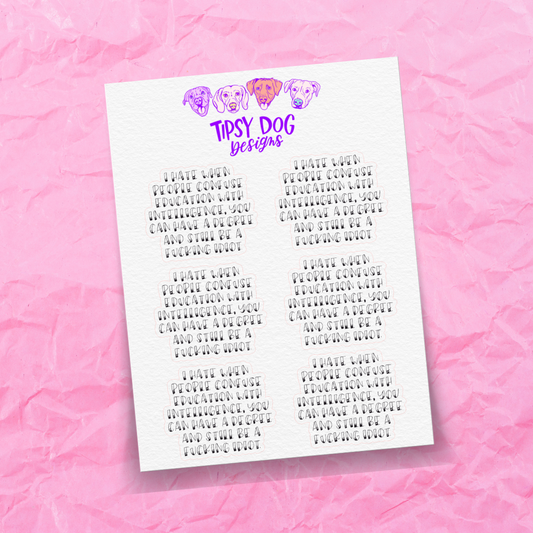 TIPSY DOG
Designs
I HATE WHEN
PEOPLE CONFUSE
EDUCATION WITH
INTELLIGENCE, YOU
CAN HAVE A DEGREE
AND STILL BE A
FUCKING IDIOT
I HATE WHEN
PEOPLE CONFUSE
EDUCATION WITH
INTELLIGENCE, YOU
CAN HAVE A DEGREE
AND STILL BE A
FUCKING IDIOT
I HATE WHEN
PEOPLE CONFUSE
EDUCATION WITH
INTELLIGENCE, YOU
CAN HAVE A DEGREE
AND STILL BE A
FUCKING IDIOT
I HATE WHEN
PEOPLE CONFUSE
EDUCATION WITH
INTELLIGENCE, YOU
CAN HAVE A DEGREE
AND STILL BE A
FUCKING IDIOT
I HATE WHEN
PEOPLE CONFUSE
EDUCATION WITH
INTELLIGENCE, YOU
CAN HAVE A DEGREE
AND STILL BE A
FUCKING IDIOT
I HATE WHEN
PEOPLE CONFUSE
EDUCATION WITH
INTELLIGENCE, YOU
CAN HAVE A DEGREE
AND STILL BE A
FUCKING IDIOT